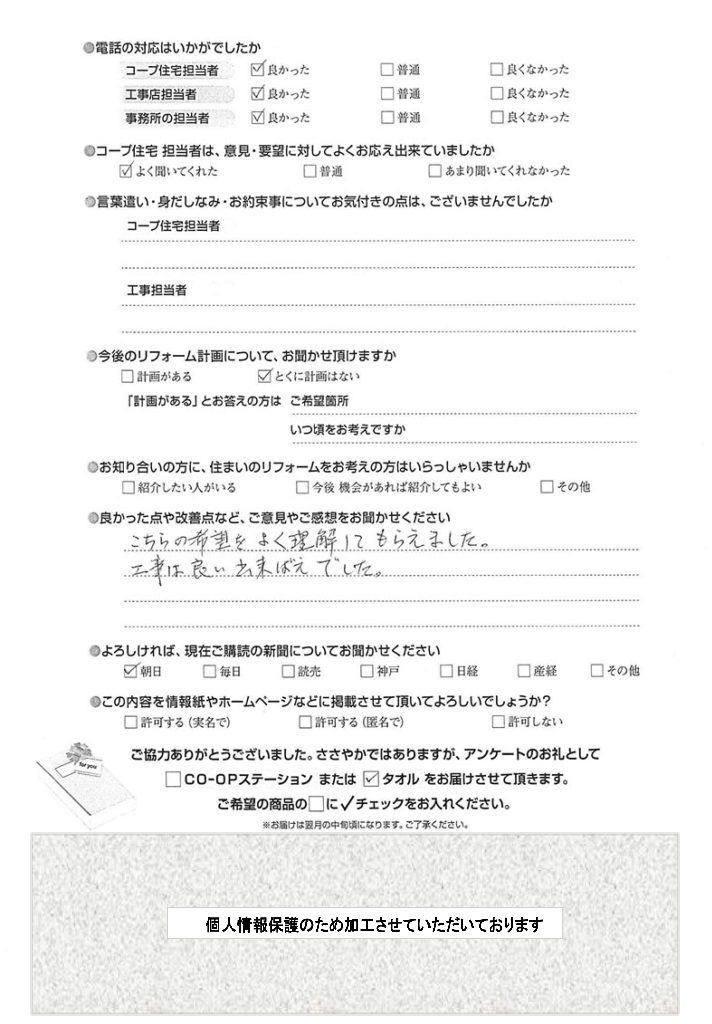 ●電話の対応はいかがでしたか
コープ住宅担当者 ☑良かった □普通 □良くなかった
工事店担当者 ☑良かった □普通 □良くなかった
事務所の担当者 ☑良かった □普通 □良くなかった
●コープ住宅 担当者は、意見・要望に対してよくお応え出来ていましたか
☑よく聞いてくれた □普通 □あまり聞いてくれなかった
●言葉遣い・身だしなみ・お約束事についてお気付きの点は、ございませんでしたか
コープ住宅担当者
工事担当者
●今後のリフォーム計画について、お聞かせ頂けますか
□計画がある ☑とくに計画はない
「計画がある」とお答えの方は ご希望箇所
いつ頃をお考えですか
●お知り合いの方に、住まいのリフォームをお考えの方はいらっしゃいませんか
□紹介したい人がいる □今後 機会があれば紹介してもよい □その他
●良かった点や改善点など、ご意見やご感想をお聞かせください
こちらの希望をよく理解してもらえました。
工事は良い出来ばえでした。
●よろしければ、現在ご購読の新聞についてお聞かせください
☑朝日 □毎日 □読売 □神戸 □日経 □産経 □その他
●この内容を情報紙やホームページなどに掲載させて頂いてよろしいでしょうか?
□許可する(実名で) □許可する(匿名で) □許可しない
for you
ご協力ありがとうございました。ささやかではありますが、アンケートのお礼として
□CO-OPステーション または ☑タオル をお届けさせて頂きます。
ご希望の商品の□に✓チェックをお入れください。
※お届けは翌月の中旬頃になります。ご了承ください。
個人情報保護のため加工させていただいております